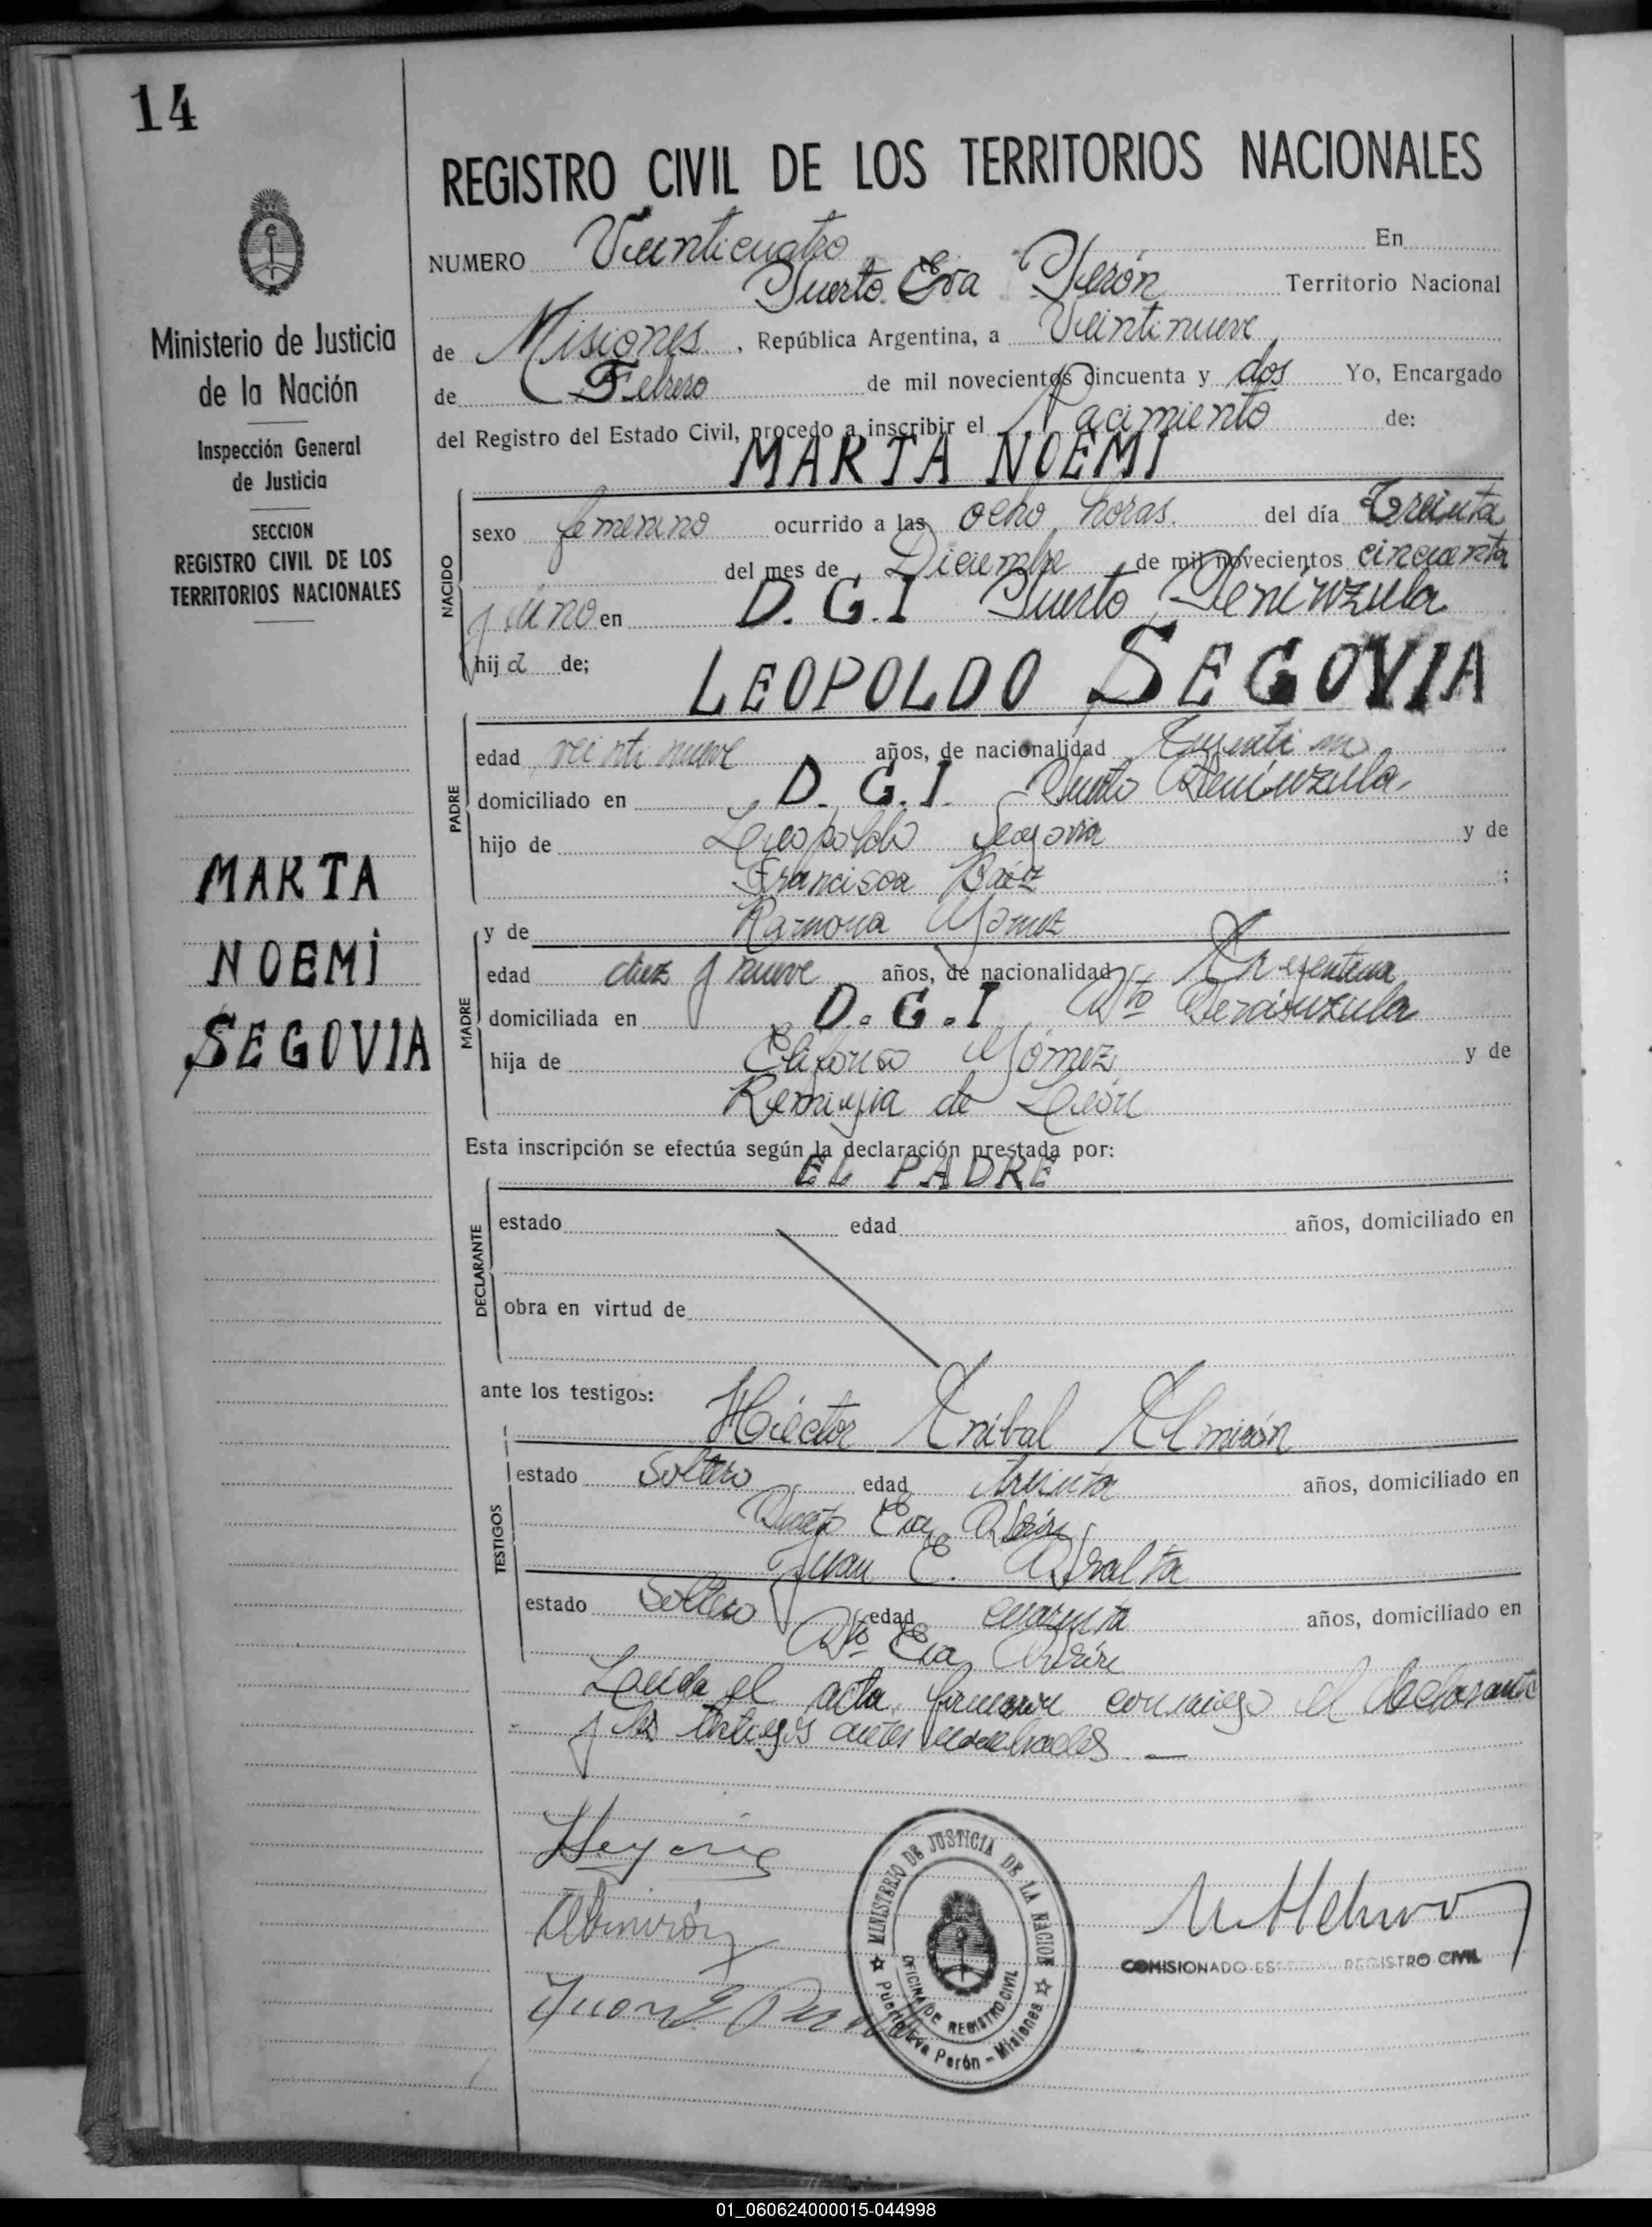 14
REGISTRO CIVIL DE LOS TERRITORIOS NACIONALES
Ministerio de Justicia
de la Nación
Inspección General
de Justicia
SECCION
REGISTRO CIVIL DE LOS
TERRITORIOS NACIONALES
MARTA
NOEMI
SEGOVIA
NUMERO Veinticuatro En
Puerto Eva Perón Territorio Nacional
de Misiones, República Argentina, a Veintinueve
de Febrero de mil novecientos cincuenta y dos Yo, Encargado
del Registro del Estado Civil, procedo a inscribir el Nacimiento de:
MARTA NOEMI
NACIDO
sexo femenino ocurrido a las ocho horas. del día Treinta
del mes de Diciembre de mil novecientos cincuenta
y uno en D.G.I Puerto Peninzula
hija de;
LEOPOLDO SEGOVIA
PADRE
edad veintinueve años, de nacionalidad Argentino
domiciliado en D.G.I. Puerto Peninzula
hijo de Leopoldo Segovia y de
Francisca Báez ;
y de Ramona Gomez
MADRE
edad diez y nueve años, de nacionalidad Argentina
domiciliada en D.G.I Pto Peninzula
hija de Gómez y de
Remigia de León
Esta inscripción se efectúa según la declaración prestada por:
EL PADRE
DECLARANTE
estado edad años, domiciliado en
obra en virtud de
ante los testigos:
Héctor Anibal Almirón
TESTIGOS
estado Soltero edad treinta años, domiciliado en
Puerto Eva Perón
Juan E. Peralta
estado Soltero edad cuarenta años, domiciliado en
Pto Eva Perón
Leída el acta, firmaron conmigo el declarante
y los testigos antes nombrados. —
Segovia
Almirón
Juan E Peralta
MINISTERIO DE JUSTICIA DE LA NACION
OFICINA DE REGISTRO CIVIL
Puerto Eva Perón - Misiones
COMISIONADO ESPECIAL REGISTRO CIVIL
01_060624000015-044998